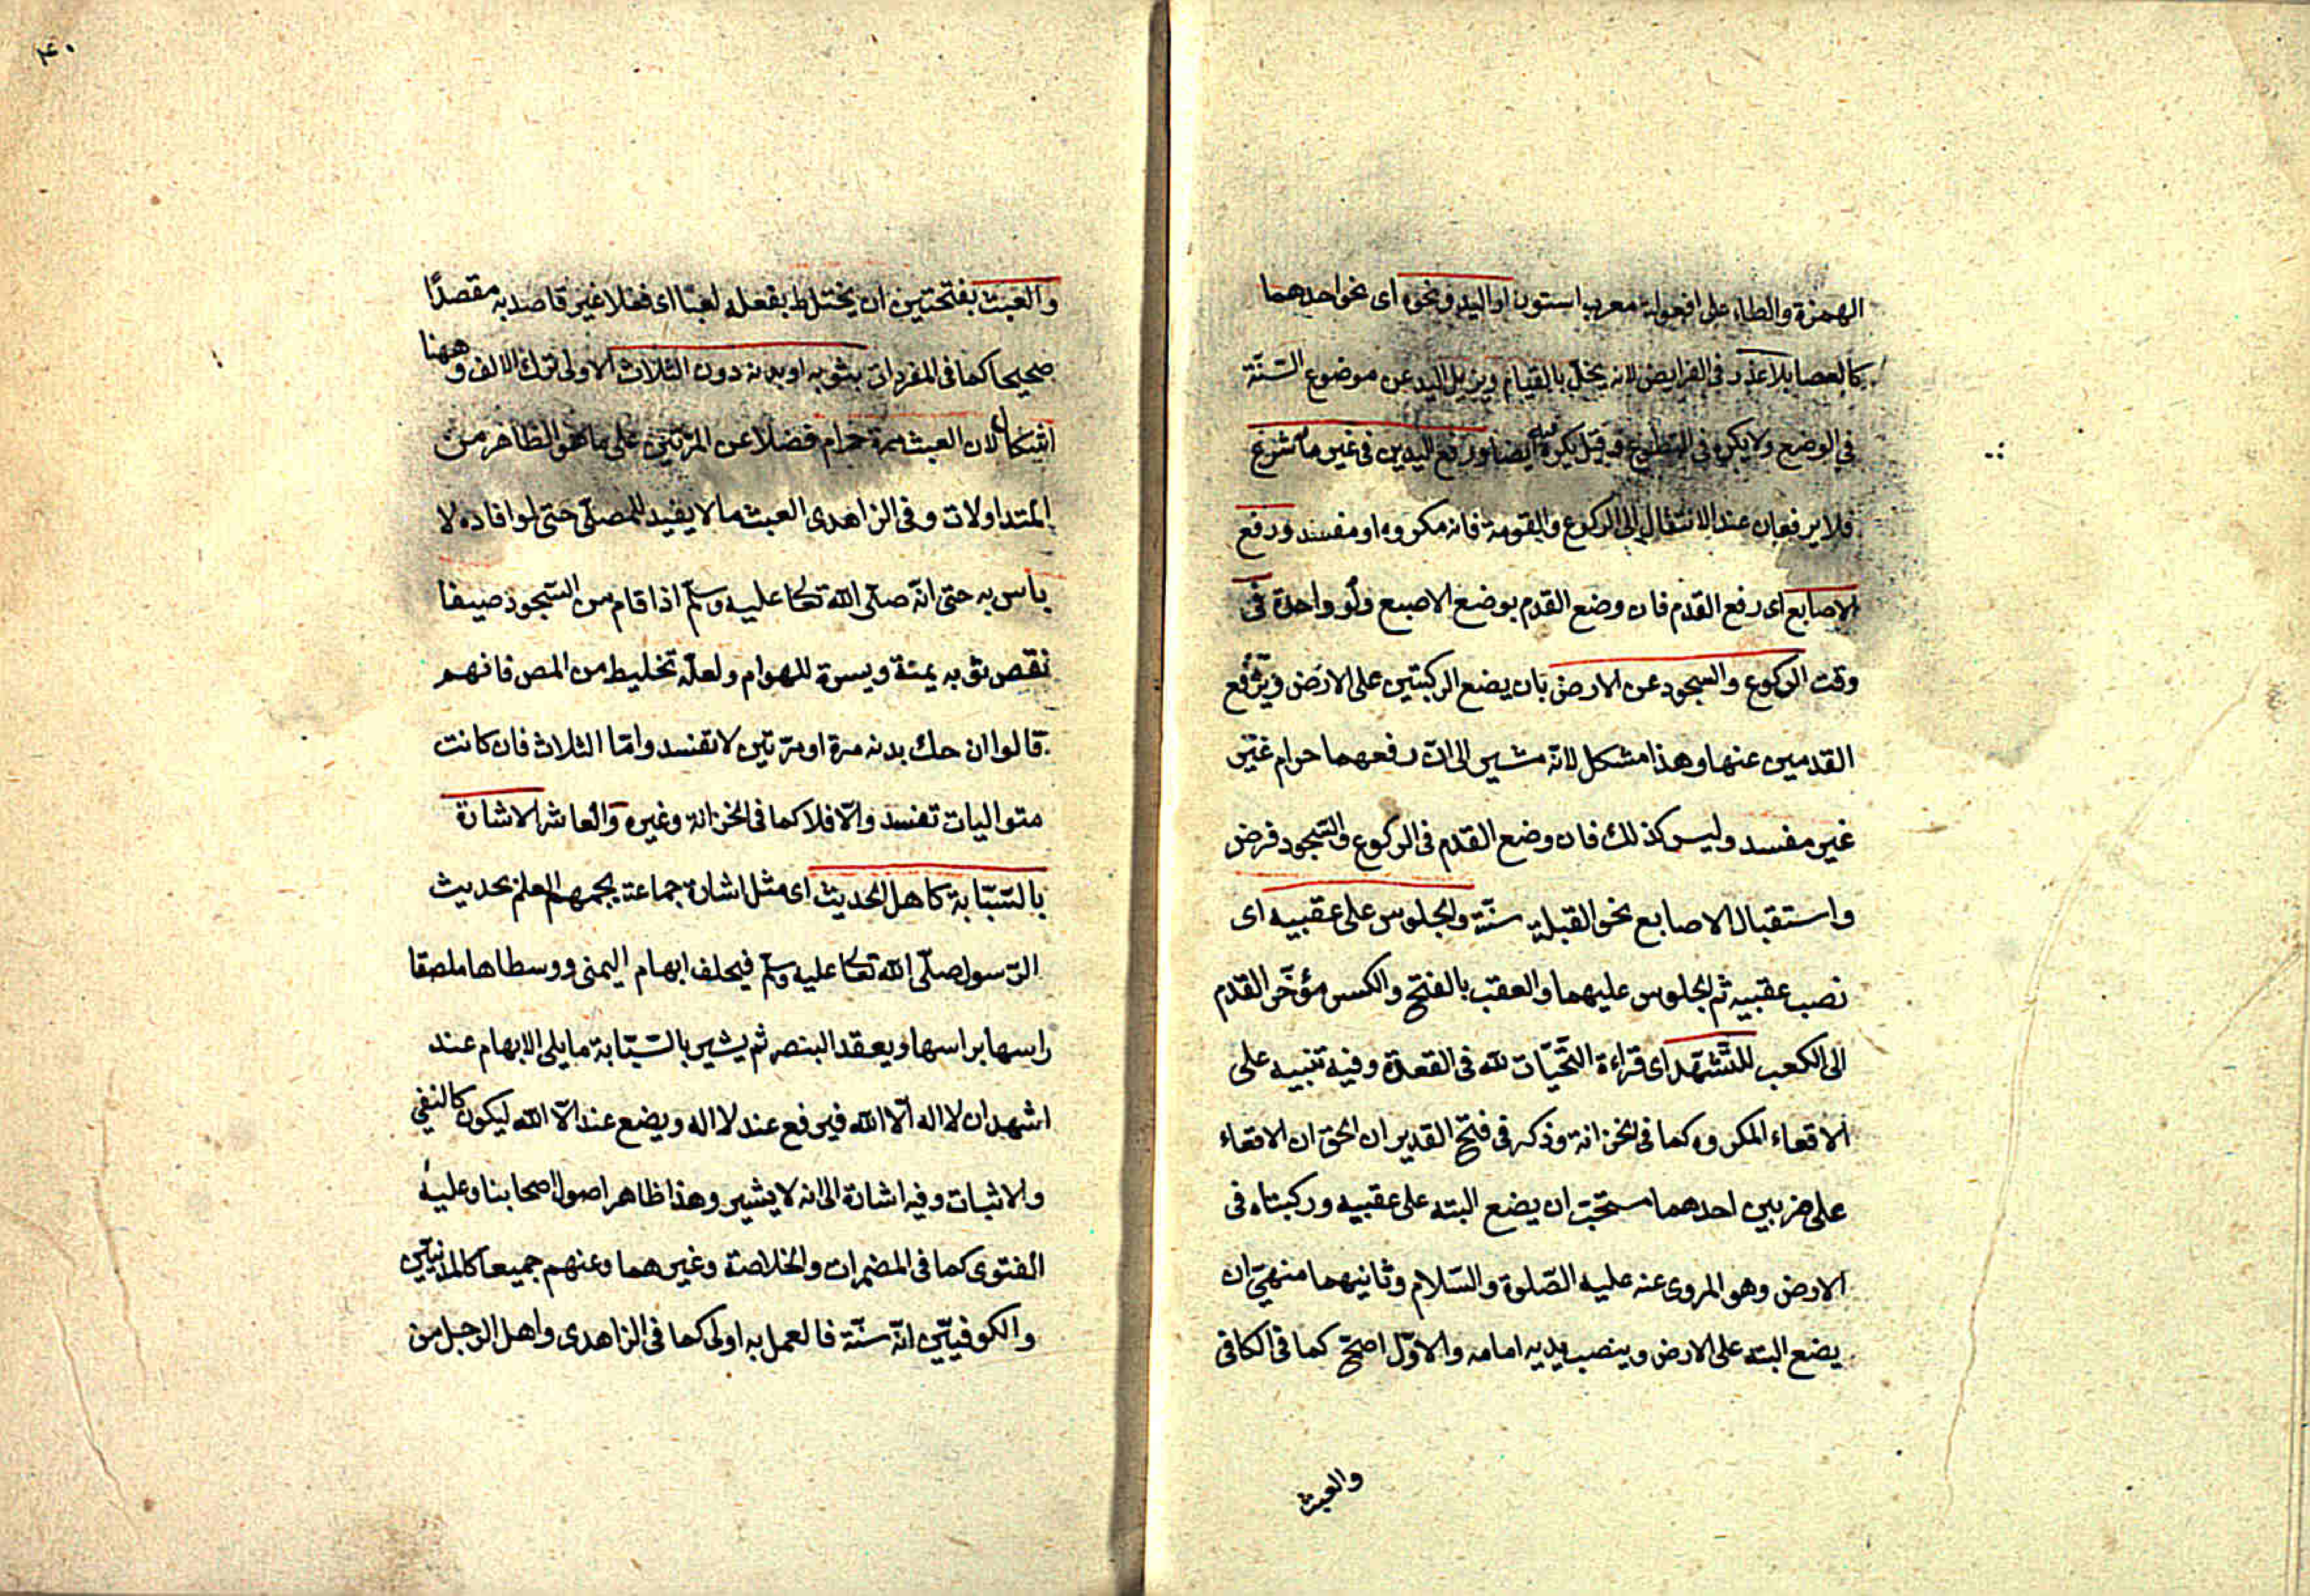 الهمزة والطاء على افعوالة معرب استون او اليد ونحوه اى نحو احدهما
كالعصا بلا عذر فى الفرايض لانه يخل بالقيام ويزيل اليد عن موضوع السّنّة
فى الوضع ولا يكره فى التطوع وقيل يكره فيه ايضا ورفع اليدين فى غير ما شرع
فلا يرفعان عند الانتقال الى الركوع والقومة فانه مكروه او مفسد ورفع
الاصابع اى رفع القدم فان وضع القدم بوضع الاصبع ولو واحدة فى
وقت الركوع والسجود عن الارض بان يضع الركبتين على الارض ويرفع
القدمين عنها وهذا مشكل لانّه مشير الى انّ رفعهما حرام غير
غير مفسد وليس كذلك فان وضع القدم فى الركوع والسّجود فرض
واستقبال الاصابع نحو القبلة سنّة والجلوس على عقبيه اى
نصب عقبيه ثم الجلوس عليهما والعقب بالفتح والكسر مؤخّر القدم
الى الكعب للتّشهّد اى قراءة التّحيّات لله فى القعدة وفيه تنبيه على
الاقعاء المكروه كما فى الخزانة وذكر فى فتح القدير ان الحق ان الاقعاء
على ضربين احدهما مستحبّ ان يضع اليته على عقبيه وركبتاه فى
الارض وهو المروى عنه عليه الصّلوة والسّلام وثانيهما منهىّ ان
يضع اليته على الارض وينصب يديه امامه والاوّل اصحّ كما فى الكافى
والعبث
۴۰
والعبث بفتحتين ان يختلط بفعله لعبا اى فعلا غير قاصد به مقصدًا
صحيحا كما فى المفردات بثوبه او بدنه دون الثلاث الاولى ترك الالف و ههنا
اشكال لان العبث مرة حرام فضلا عن المرتين على ما هو الظاهر من
المتداولات وفى الزاهدى العبث ما لا يفيد للمصلّى حتى لو افاده لا
باس به حتى انّه صلّى الله تعالى عليه وسلّم اذا قام من السّجود صيفا
نقص ثوبه يمنة ويسرة للهوام ولعلّه تخليط من المص فانهم
قالوا ان حك بدنه مرة او مرّتين لا تفسد وامّا الثلاث فان كانت
متواليات تفسد والّا فلا كما فى الخزانة وغيره والعاشر الاشارة
بالسّبّابة كاهل الحديث اى مثل اشارة جماعة يجمعهم العلم بحديث
الرّسول صلّى الله تعالى عليه وسلّم فيحلف ابهام اليمنى ووسطاها ملصقا
راسها براسها ويعقد البنصر ثم يشير بالسّبّابة ما يلى الابهام عند
اشهد ان لا اله الّا الله فيرفع عند لا اله ويضع عند الّا الله ليكون كالنفى
والاثبات وفيه اشارة الى انه لا يشير وهذا ظاهر اصول اصحابنا وعليه
الفتوى كما فى المضمرات والخلاصة وغيرهما وعنهم جميعا كالمدنيّين
والكوفيّين انّه سنّة فالعمل به اولى كما فى الزاهدى واهل الرجل من